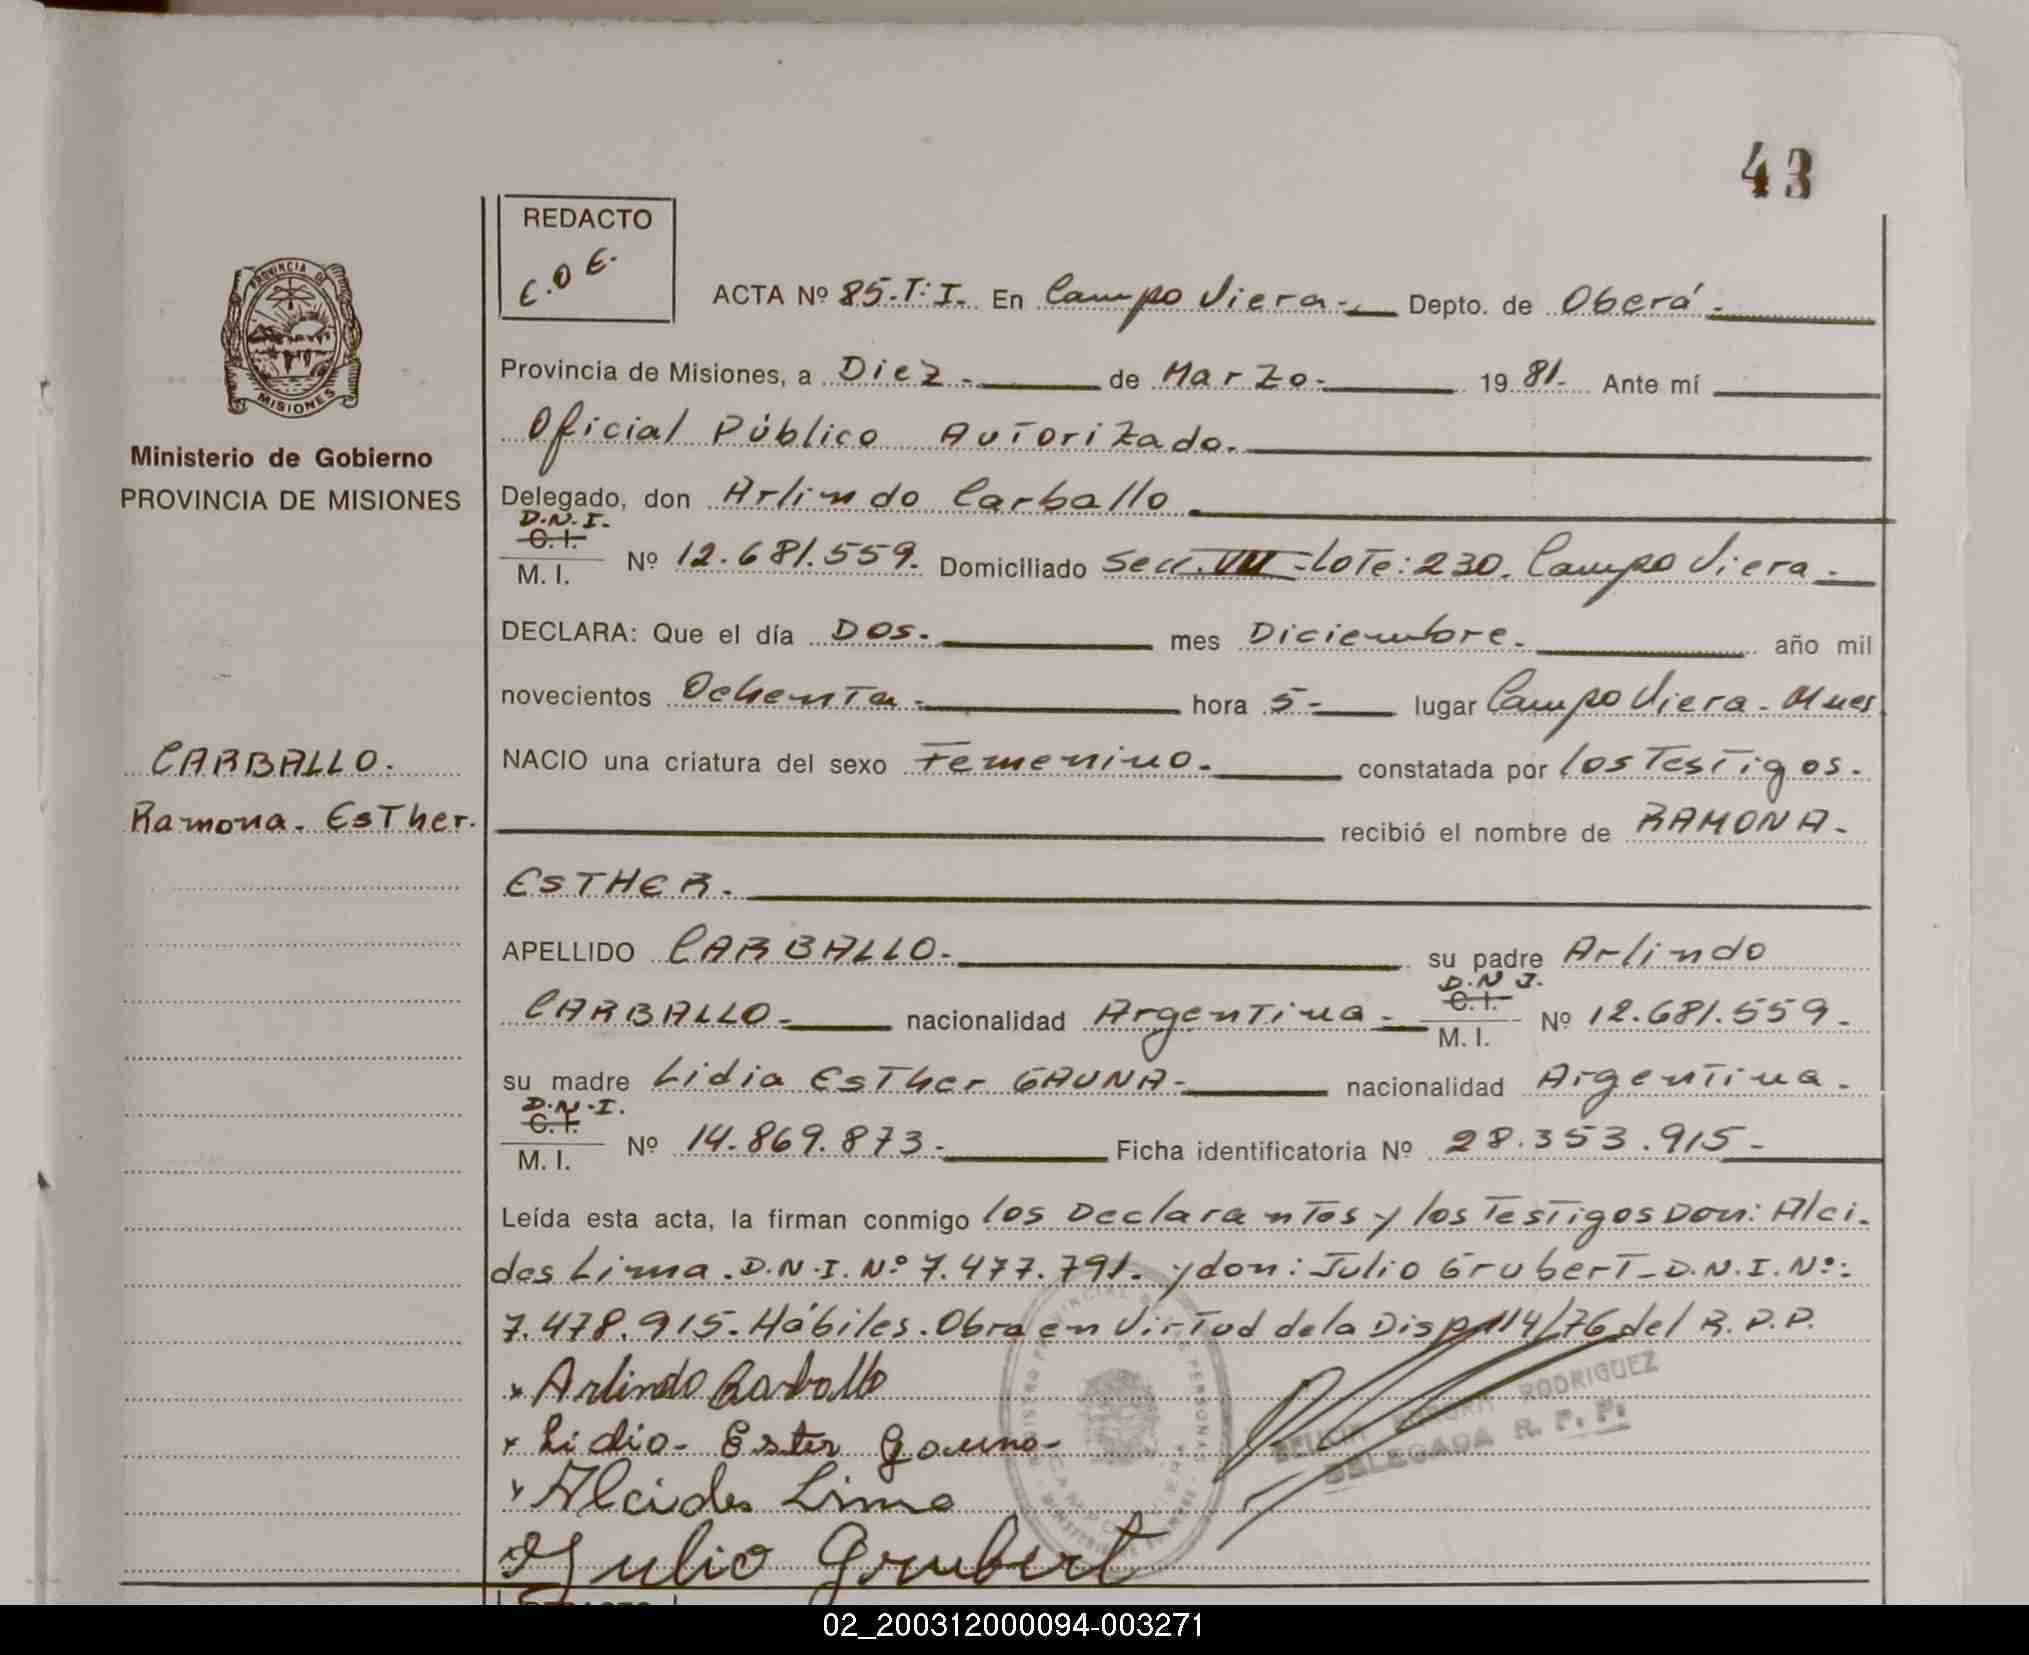 43
REDACTO
E.O.E.
ACTA Nº 85-T:I. En Campo Viera.- Depto. de Oberá.
PROVINCIA DE
MISIONES
Provincia de Misiones, a Diez.- de Marzo.- 1981.- Ante mí
Oficial Público Autorizado.
Ministerio de Gobierno
PROVINCIA DE MISIONES
Delegado, don Arlindo Carballo
D.N.I.
C.I.
M. I. Nº 12.681.559. Domiciliado Secc. VIII-Lote: 230. Campo Viera.-
DECLARA: Que el día Dos.- mes Diciembre.- año mil
novecientos Ochenta.- hora 5- lugar Campo Viera. Mnes
NACIO una criatura del sexo Femenino.- constatada por los Testigos.
recibió el nombre de RAMONA-
ESTHER.
CARBALLO.
Ramona. Esther.
APELLIDO CARBALLO.- su padre Arlindo
CARBALLO.- nacionalidad Argentina.-
D.N.I.
C.I.
M. I. Nº 12.681.559.
su madre Lidia Esther GAUNA- nacionalidad Argentina.
D.N.I.
C.I.
M. I. Nº 14.869.873.- Ficha identificatoria Nº 28.353.915-
Leída esta acta, la firman conmigo los Declarantes y los Testigos Don: Alci-
des Lima. D.N.I. Nº 7.477.791. y don: Julio Grubert- D.N.I. Nº:
7.478.915. Hábiles. Obra en Virtud de la Disp. 114/76 del R.P.P.
x Arlindo Carballo
x Lidia- Ester Gauna-
x Alcides Lima
Julio Grubert
RODRIGUEZ
DELEGADA R. P. P.
02_200312000094-003271